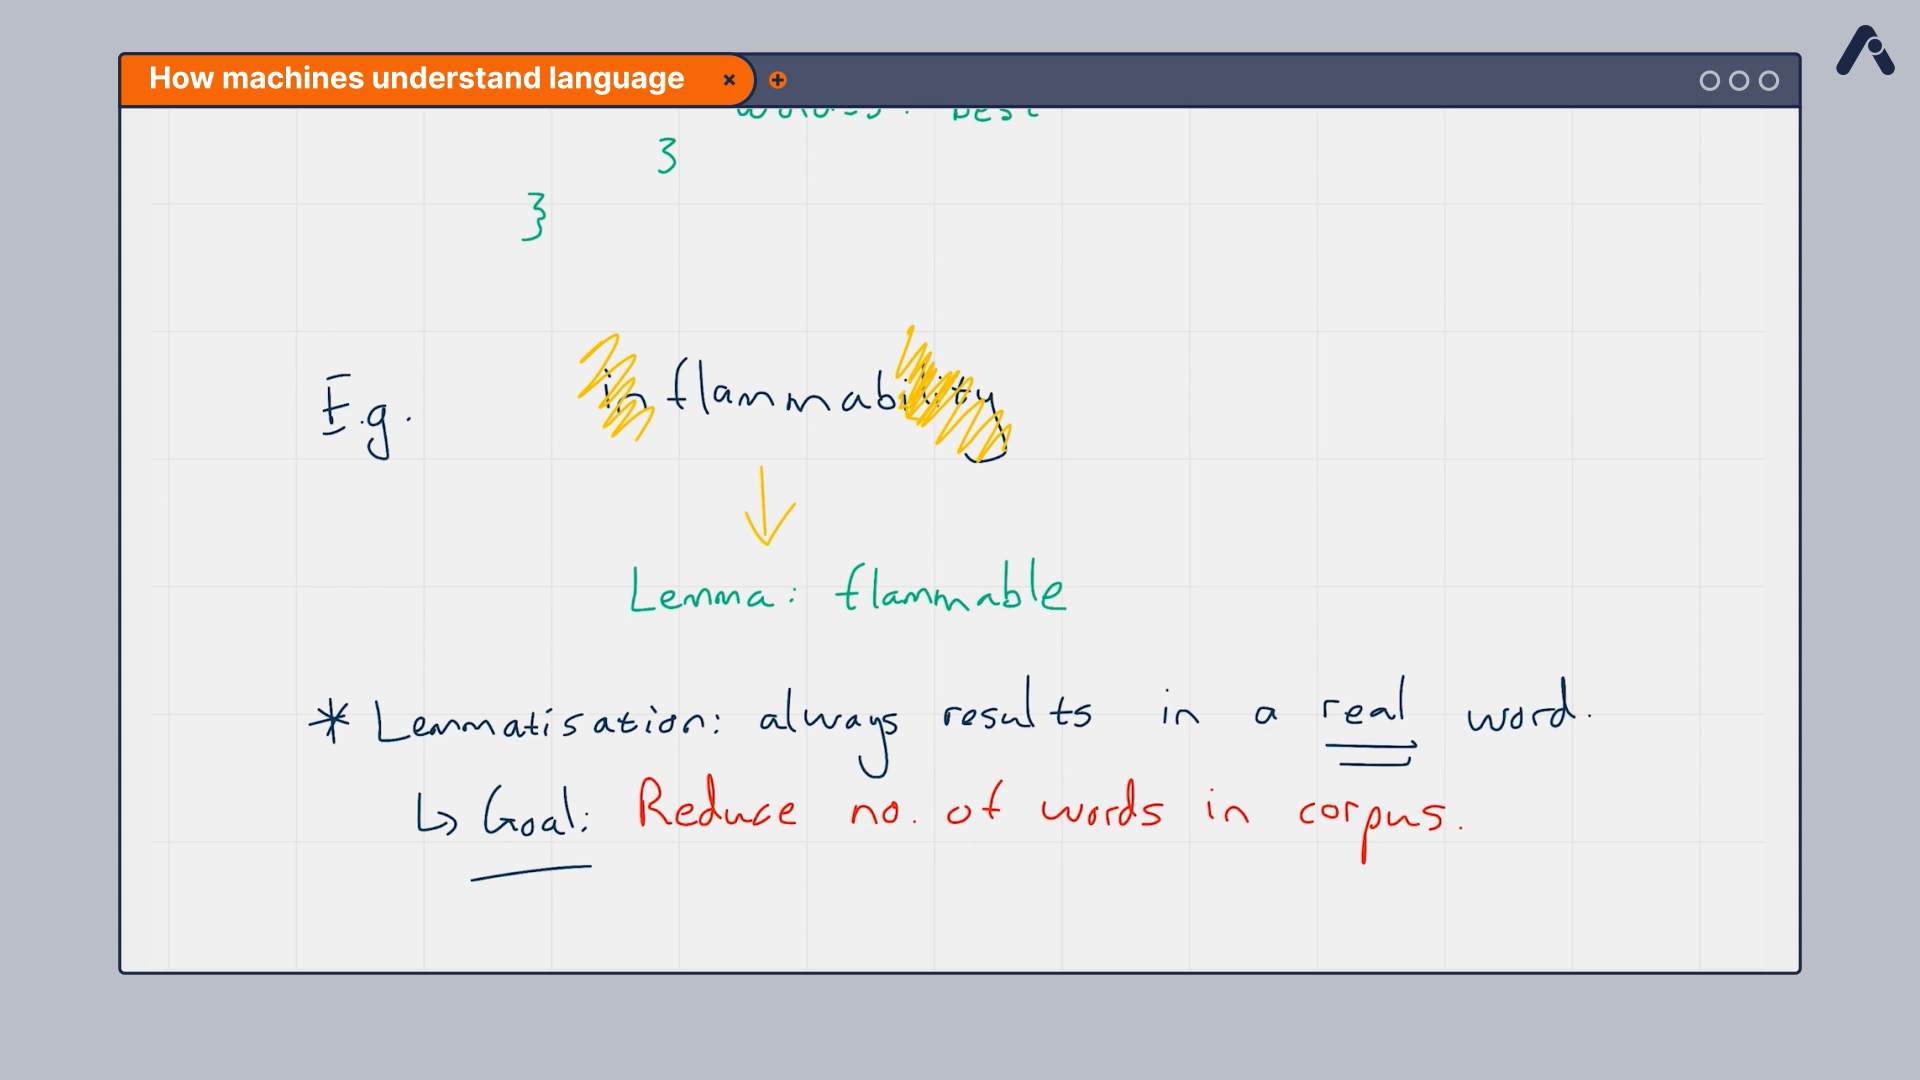 How machines understand language
}
}
E.g. inflammability
Lemma: flammable
* Lemmatisation: always results in a real word.
↳ Goal: Reduce no. of words in corpus.